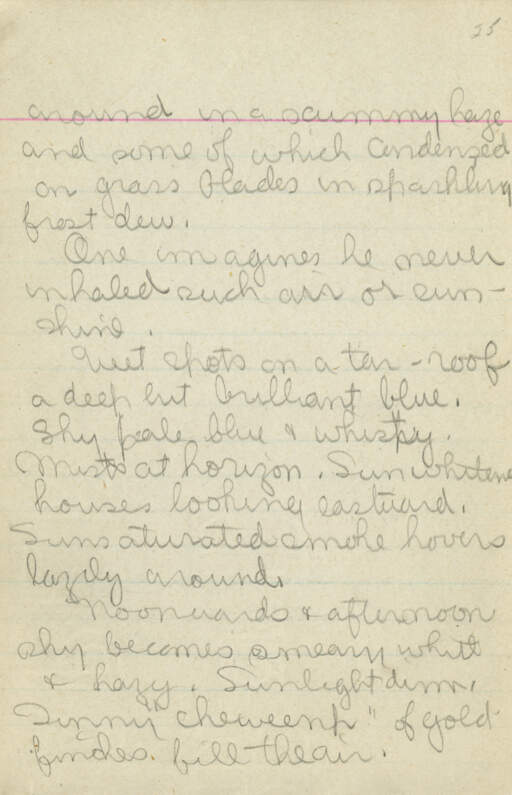 25
around in a scummy haze
and some of which condensed
on grass blades in sparkling
frost dew.
One imagines he never
inhaled such air or sun-
shine.
Wet spots on a tar-roof
a deep but brilliant blue.
Sky pale blue & whispy.
Mists at horizon. Sun whitens
houses looking eastward.
Sunsaturated smoke hovers
lazily around.
Noonwards & afternoon
sky becomes smeary white
& hazy. Sunlight dim.
Tinny "cheweenk" of gold-
finches fill the air.